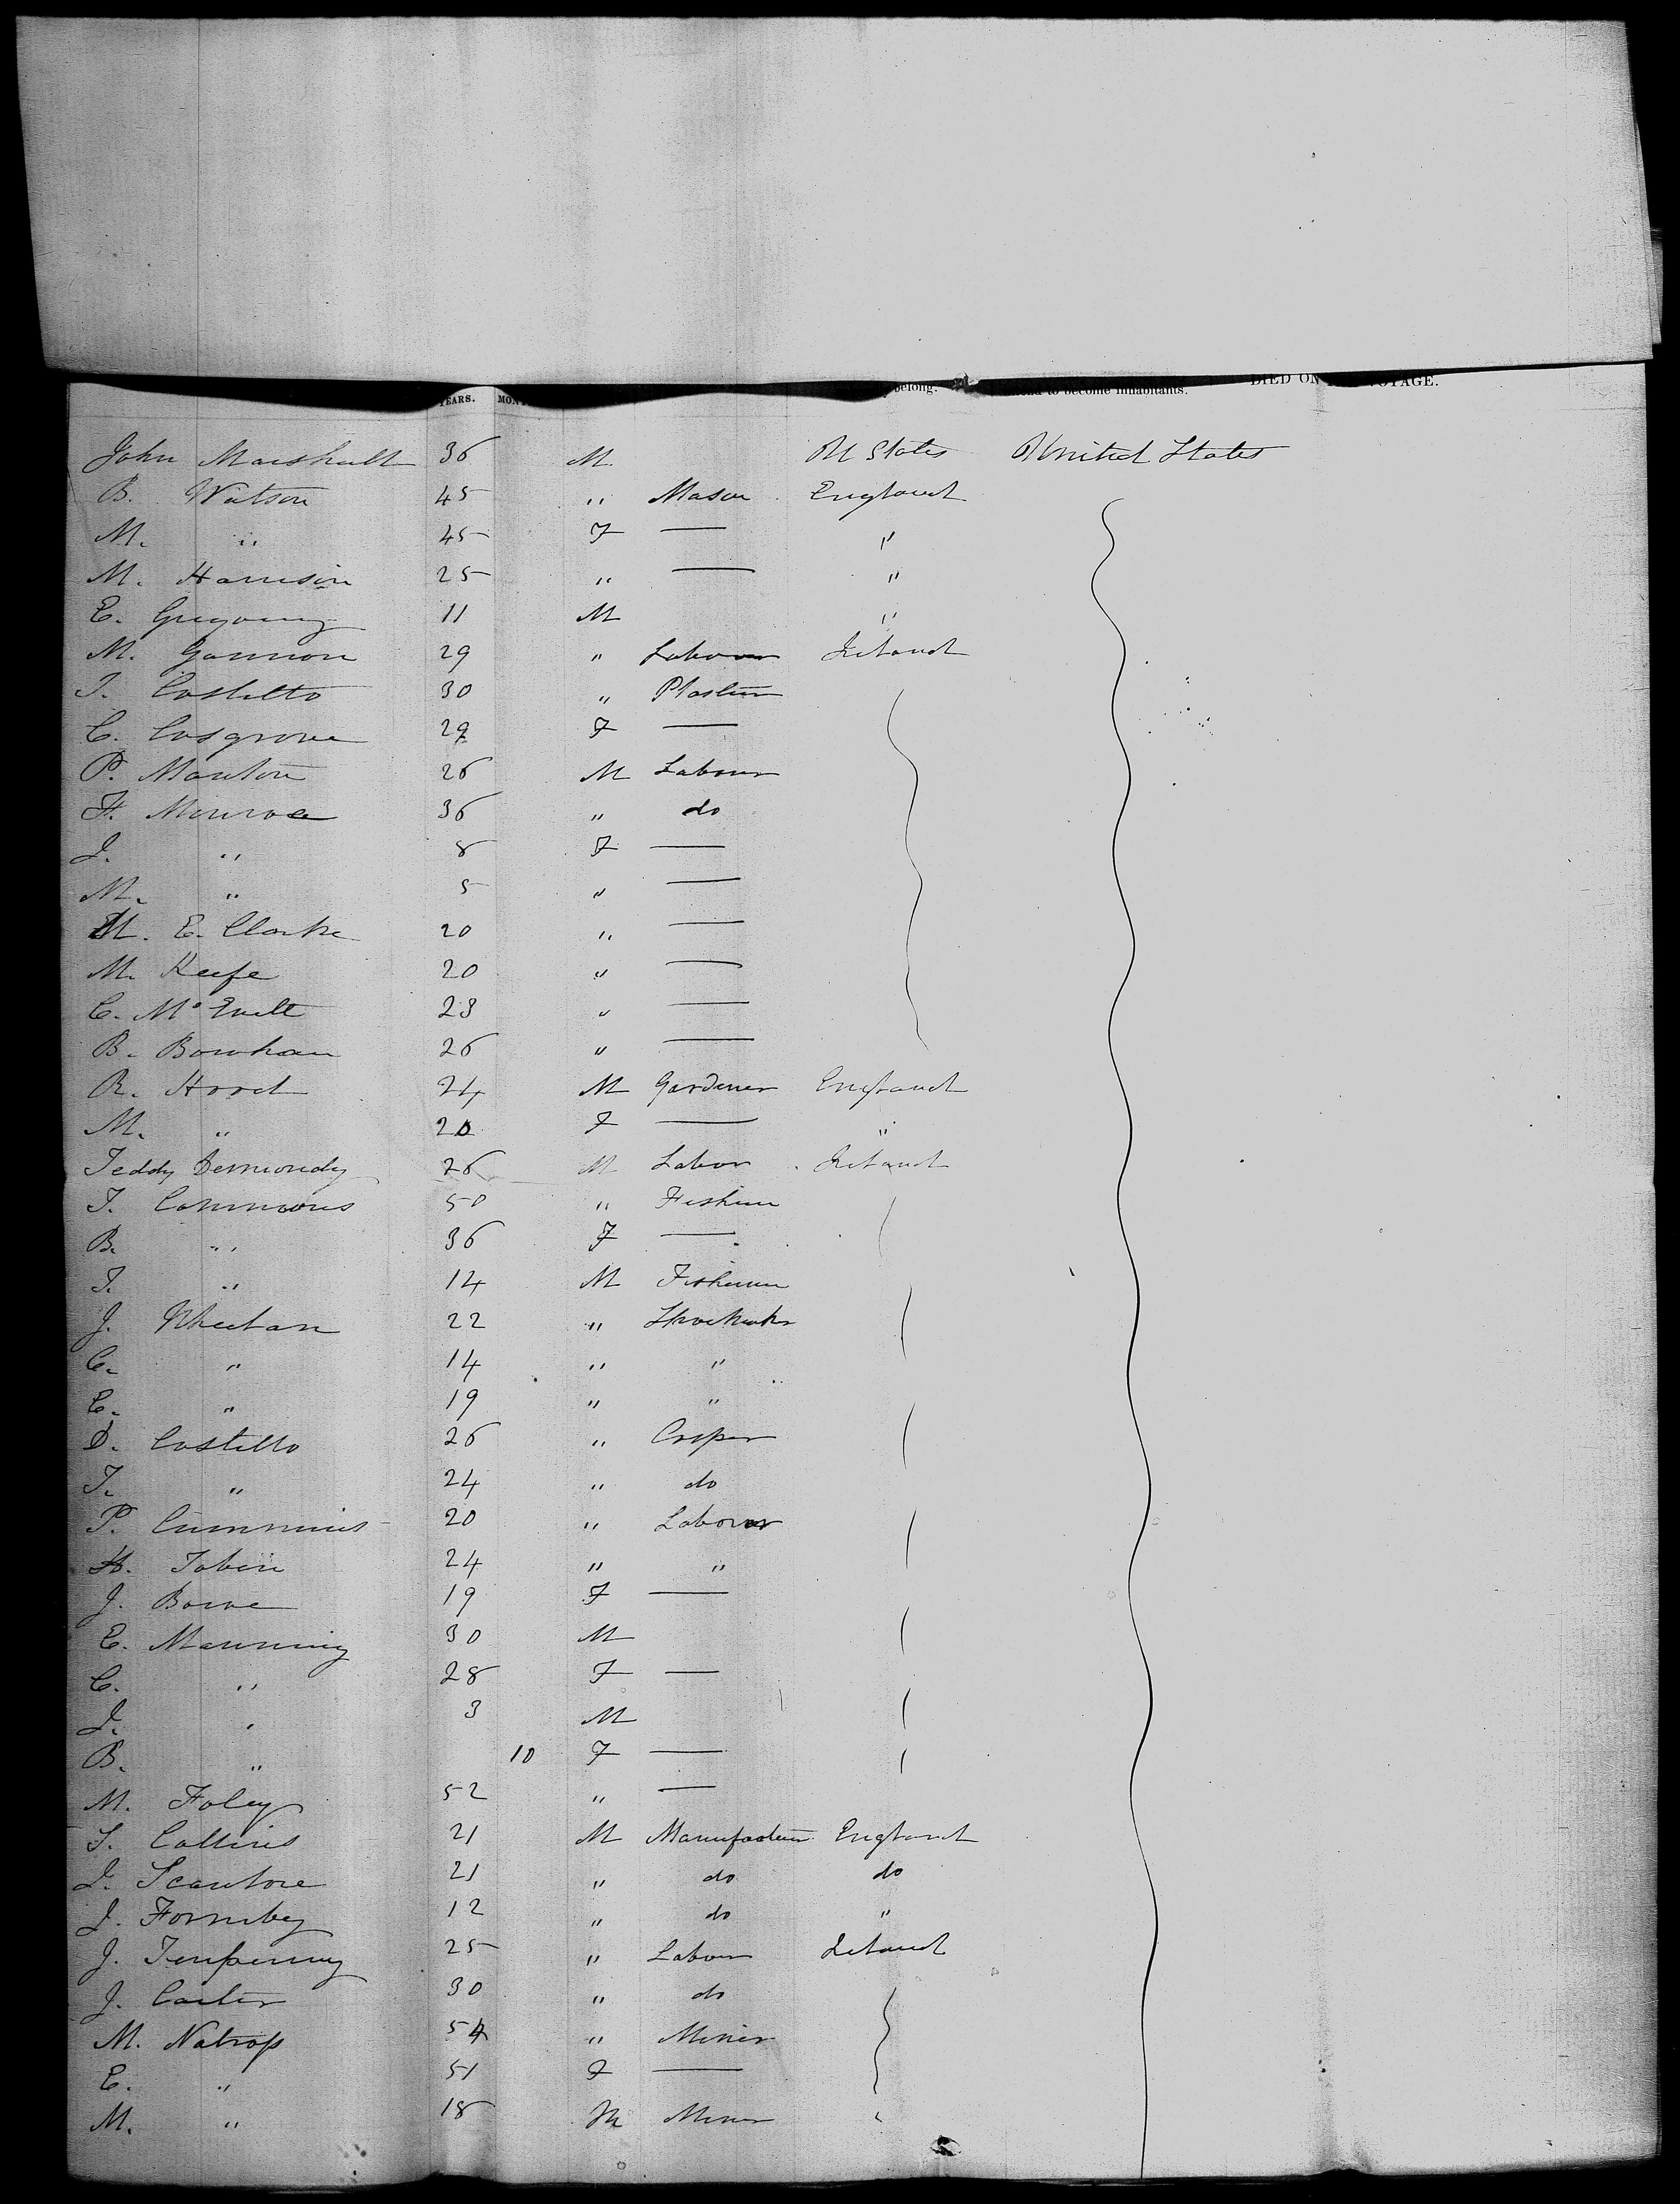 YEARS. MON belong. to become inhabitants. DIED ON VOYAGE.
John Marshall 36 M. U States United States
B. Watson 45 " Mason England
M. " 45 F — "
M. Harrison 25 " — "
E. Gregory 11 M "
M. Gannon 29 " Labour Ireland
T. Costello 30 " Plasterer
C. Cosgrove 29 F —
P. Manton 26 M Labour
F. Monroe 36 " do
J. " 8 F —
M. " 5 " —
M. E. Clarke 20 " —
M. Keefe 20 " —
C. 23 " —
B. 26 " —
R. Hood 24 M Gardener England
M. " 20 F — "
Teddy Dermondy 26 M Labor Ireland
T. Commons 50 " Fisherm
B. " 36 F —
T. " 14 M Fisherm
J. Wheelan 22 " Shoemakr
C. " 14 " "
E. " 19 " "
D. Costello 26 " Cooper
T. " 24 " do
P. Cummins 20 " Labour
H. Tobin 24 " "
J. 19 F —
E. Manning 30 M
C. " 28 F —
J. " 3 M
B. " 10 F —
M. Foley 52 " —
T. Collins 21 M Manufacturer England
J. 21 " do do
J. Formby 12 " do "
J. Tenpenny 25 " Labour Ireland
J. Carter 30 " do
M. Natrop 54 " Miner
E. " 51 F —
M. " 18 M Miner "